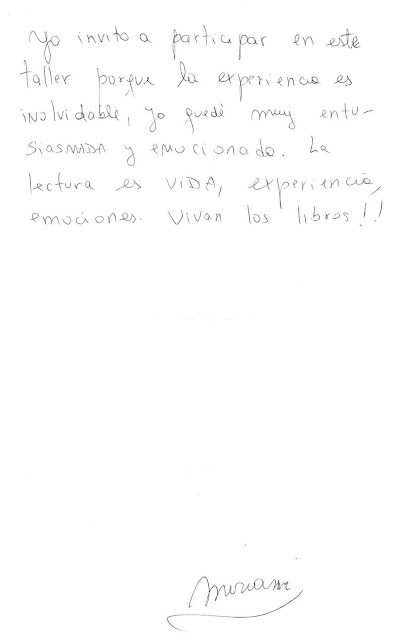 Yo invito a participar en este
taller porque la experiencia es
inolvidable, yo quedé muy entu-
siasMADA y emocionada. La
lectura es VIDA, experiencia,
emociones. Vivan los libros!!
Miriam